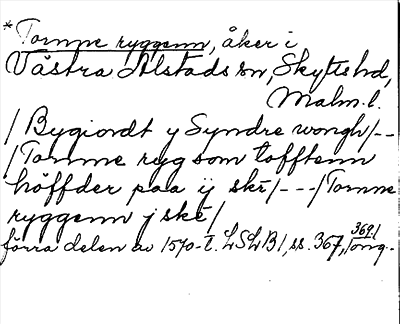 * Tornne ryggenn, åker i
Västra Alstads sn, Skytts hd,
Malm. l.
/ Bygiordt y Syndre wongh/--
/Tornne ryg som tofftenn
höffder paa ij skè/---/Tornne
ryggenn j skè/
369/
förra delen av 1570-t. LSLB1, ss. 367,